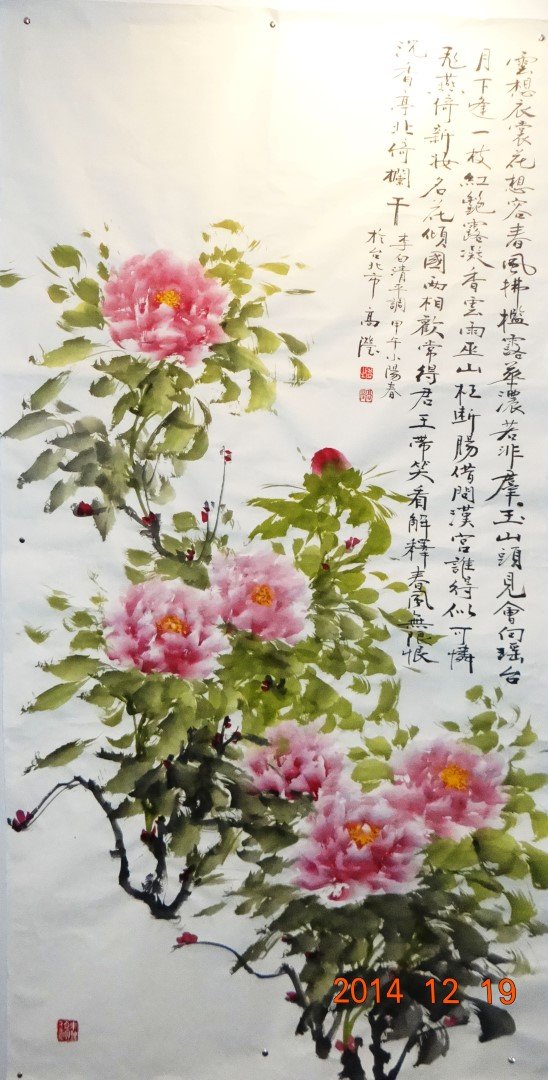 雲想衣裳花想容春風拂檻露華濃若非羣玉山頭見會向瑶台
月下逢一枝紅艷露凝香雲雨巫山枉斷腸借問漢宮誰得似可憐
飛燕倚新妝名花傾國兩相歡常得君王帶笑看解釋春風無限恨
沉香亭北倚欄干
李白清平調甲午小陽春
於台北市 高
2014 12 19